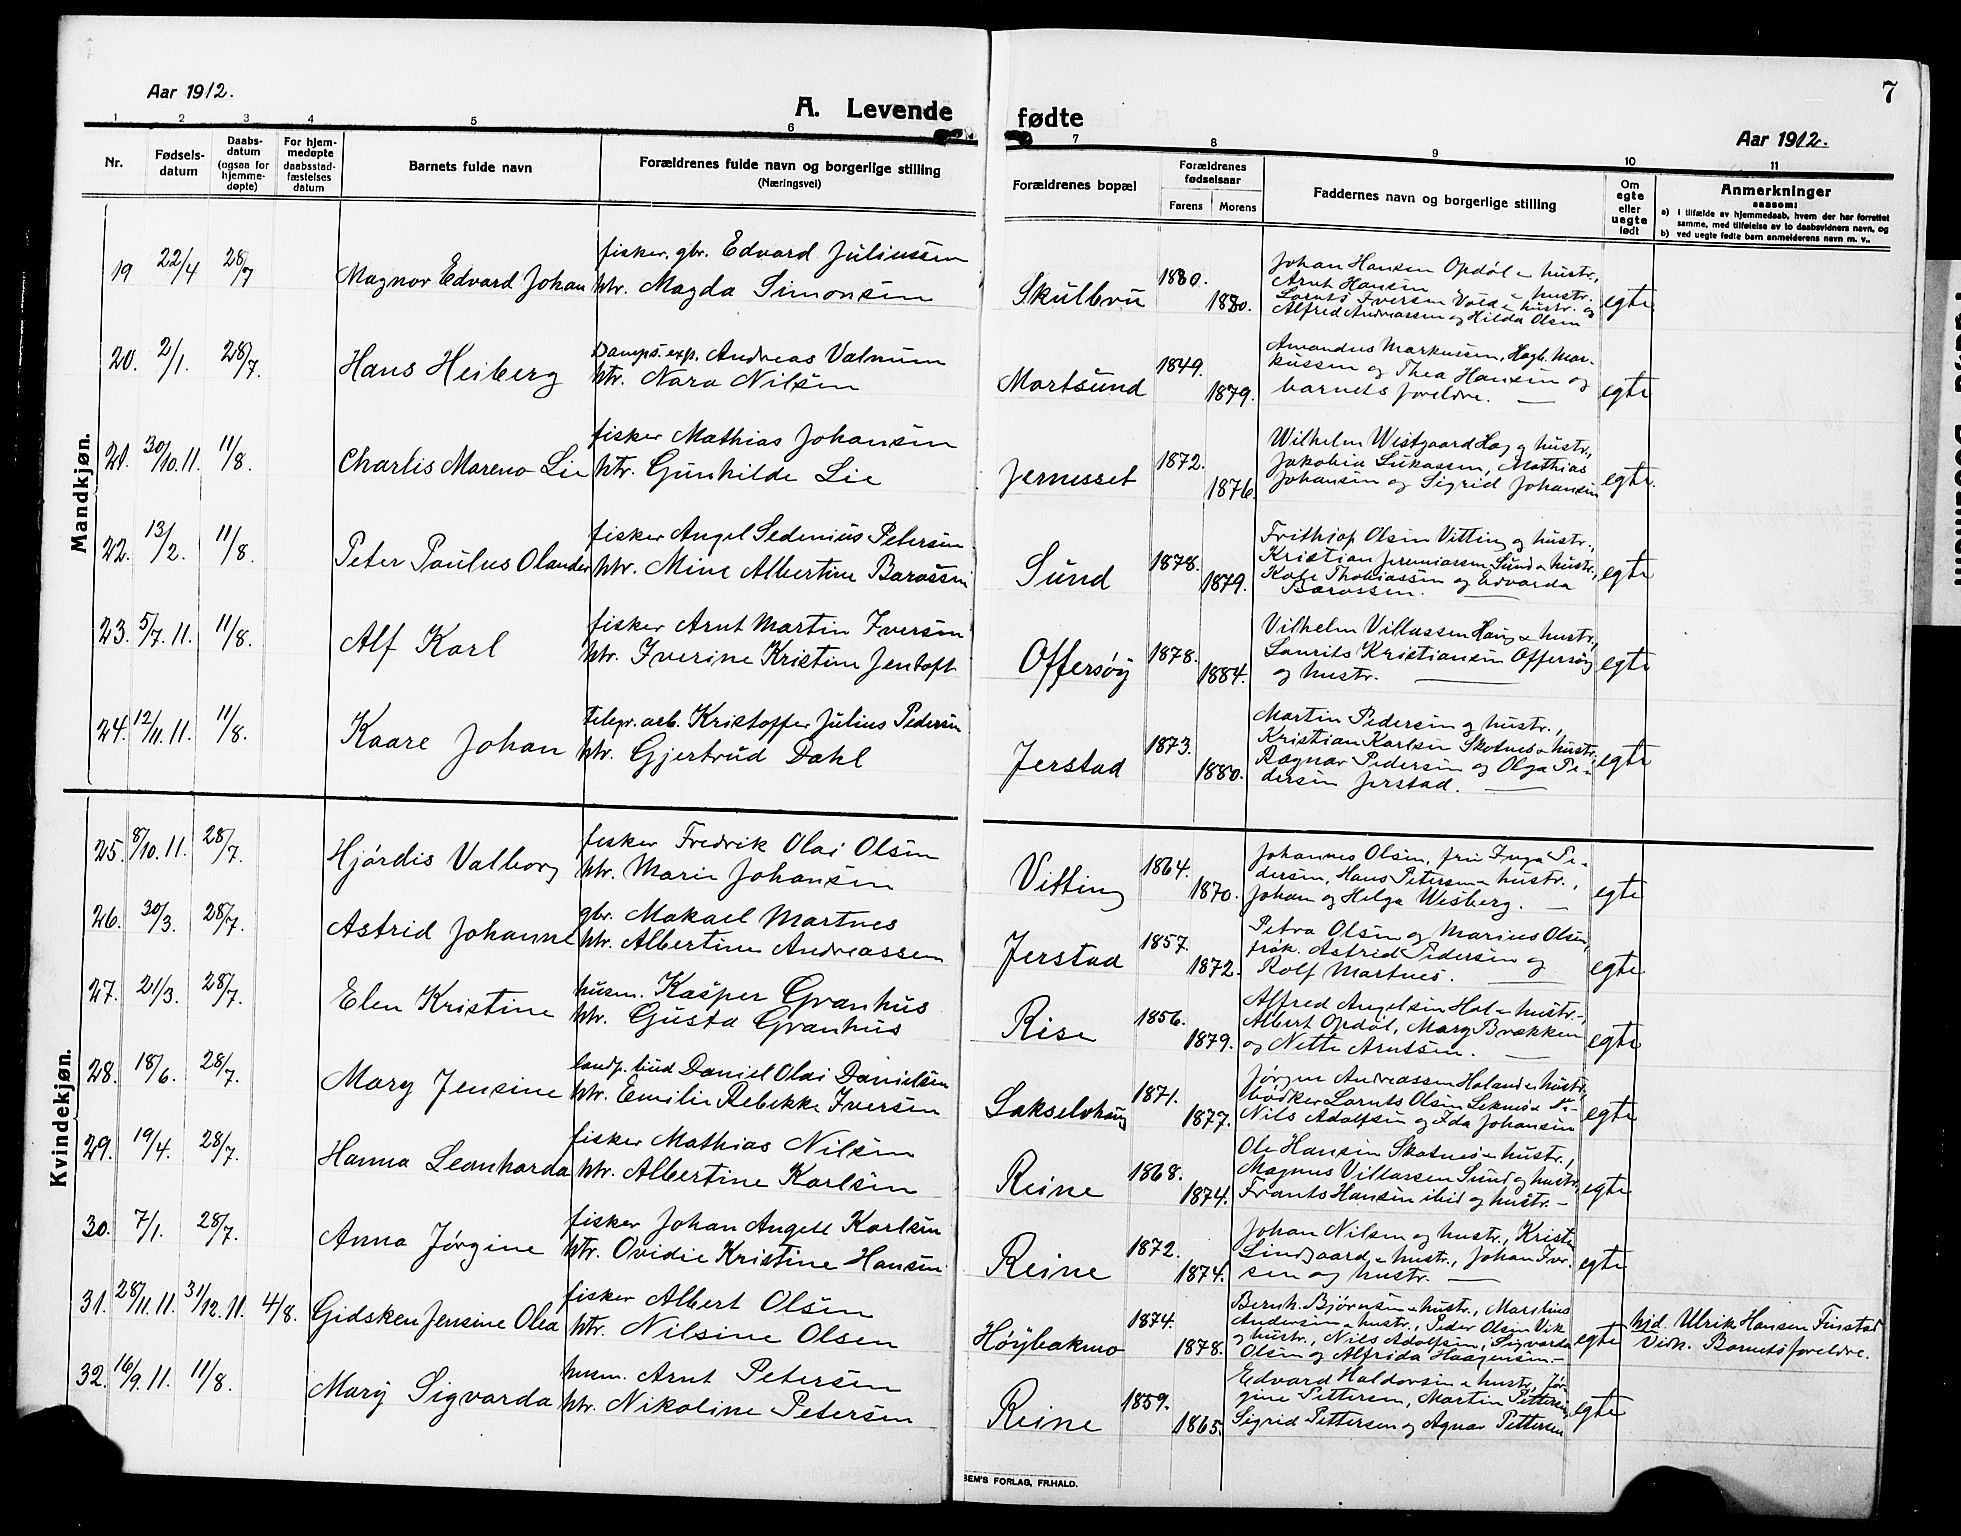 Aar 1912.
A. Levende fødte
7
Aar 1912.
1 2 3 4 5 6 7 8 9 10 11
Nr.
Fødsels-
datum
Daabs-
datum
(ogsaa for
hjemme-
døpte)
For hjem-
medøpte
daabsstad-
fæstelses
datum
Barnets fulde navn
Forældrenes fulde navn og borgerlige stilling
(Næringsvei)
Forældrenes bopæl
Forældrenes
fødselsaar
Farens Morens
Faddernes navn og borgerlige stilling
Om
egte
eller
uegte
født
Anmerkninger
saasom:
a) i tilfælde av hjemmedaab, hvem der har forrettet
samme, med tilføielse av to daabsvidners navn, og
b) ved uegte fødte barn anmelderens navn m. v..
Mandkjøn.
19 22/4 28/7 Magnor Edvard Johan
fisker, gbr. Edvard Juliussen
htr. Magda Simonsen
Skulbru 1880. 1880.
Johan Hansen Opdøl & hustr.,
Arnt Hansen & hustr.
Lornts Iversen Vold & hustr. og
Alfred Andreassen og Hilda Olsen
egte
20. 2/1. 28/7. Hans Heiberg
Damps. exp. Andreas Valnum
htr. Nora Nilsen
Mortsund 1849. 1879.
Amandus Markussen, Hagb. Mar-
kussen og Thea Hansen og
barnets foreldre.
egte
21. 30/10.11. 11/8. Charlis Moreno Lie
fisker Mathias Johansen
htr. Gunhilde Lie
Jernesset 1872. 1876.
Wilhelm Wistgaard Hag og hustr.,
Jakobia Lukassen, Mathias
Johansen og Sigrid Johansen
egte.
22. 13/2. 11/8. Peter Paulus Olander
fisker Angel Sedenius Petersen
htr. Mine Albertine Barossen
Sund 1878. 1879.
Frithjof Olsen Vitting og hustr.,
Kristian Jeremiassen Sund & hustr.,
Kofe Thobiassen og Edvarda
Barossen.
egte
23. 5/7.11. 11/8. Alf Karl
fisker Arnt Martin Iversen
htr. Iverine Kristine Jentoft
Offersøy 1878. 1884.
Vilhelm Villassen Haug & hustr.,
Laurits Kristiansen Offersøy
og hustr.
egte
24. 12/11.11. 11/8. Kaare Johan
Telegr. arb. Kristoffer Julius Pedersen
htr. Gjertrud Dahl
Jerstad 1873. 1880.
Martin Pedersen og hustr.,
Kristian Karlsen Skotnes & hustr.,
Ragnar Pedersen og Olga Pe-
dersen Jerstad.
egte
Kvindekjøn.
25. 8/10.11. 28/7. Hjördis Valborg
fisker Fredrik Olai Olsen
htr. Marie Johansen
Vitting 1864. 1870.
Johannes Olsen, fru Inga Pe-
dersen, Hans Petersen & hustr.,
Johan og Helga Wesberg.
egte
26. 30/3. 28/7. Astrid Johanne
gbr. Makael Martnes
htr. Albertine Andreassen
Jerstad 1857. 1872.
Petra Olsen og Marius Olsen,
frøk. Astrid Pedersen og
Rolf Martnes.
egte
27. 21/3. 28/7. Elen Kristine
husm. Kasper Granhus
htr. Gusta Granhus
Rise 1856. 1879.
Alfred Angelsen Hol & hustr.,
Albert Opdøl, Mary Brækken
og Nette Arntsen.
egte
28. 18/6. 28/7. Mary Jensine
landp. bud Daniel Olai Danielsen
htr. Emilie Rebekke Iversen
Lakselvhaug 1871. 1877.
Jørgen Andreassen Holand & hustr.,
bødker Lornts Olsen Leknes &
Nils Adolfsen og Ida Johansen
egte
29. 19/4. 28/7. Hanna Leonharda
fisker Mathias Nilsen
htr. Albertine Karlsen
Reine 1868. 1874.
Ole Hansen Skotnes & hustr.,
Magnus Villassen Sund og hustr.,
Frants Hansen ibid og hustr.
egte
30. 7/1. 28/7. Anna Jørgine
fisker Johan Angell Karlsen
htr. Ovidie Kristine Hansen
Reine 1872. 1874.
Johan Nilsen og hustr., Kristen
Lindgaard & hustr., Johan Iver-
sen og hustr.
egte
31. 28/11.11. 31/12.11. 4/8. Gidsken Jensine Olea
fisker Albert Olsen
htr. Nilsine Olsen
Høybakmo 1874. 1878.
Bernh. Bjørnsen & hustr., Marelius
Andersen & hustr., Peder Olsen Vik
og hustr., Nils Adolfsen, Sigvarda
Olsen og Alfrida Haagensen.
egte
hjd. Ulrik Hansen Finstad
Vidn. Barnets foreldre.
32. 16/9.11. 11/8. Mary Sigvarda
husm. Arnt Petersen
htr. Nikoline Petersen
Reine 1859. 1865.
Edvard Haldorsen & hustr., Jør-
gine Pettersen, Martin Pettersen,
Sigrid Pettersen og Agnar Pettersen
egte
SEM'S FORLAG, FR.HALD.